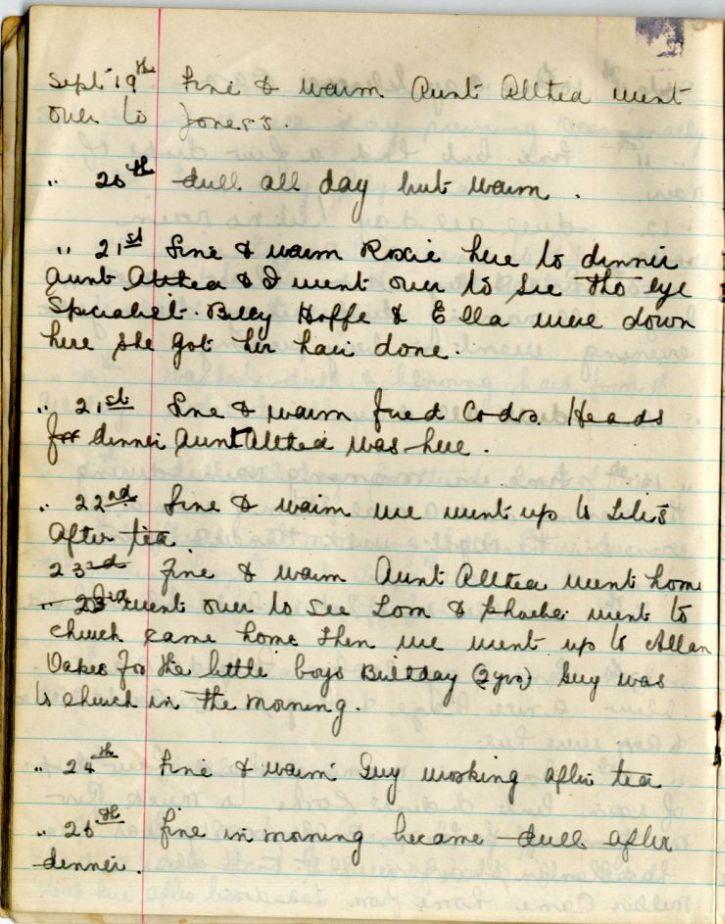 Sept 19th Fine & warm Aunt Allthea went
over to Jones's.
" 20th dull all day but warm.
" 21st Fine & warm Roxie here to dinner
Aunt Althea & I went over to see the eye
Specialist. Billy Hoffe & Ella were down
here she got her hair done.
" 21st Fine & warm fried Cods. Heads
for dinner Aunt Althea was here.
" 22nd Fine & warm we went up to Lili's
After tea
23rd Fine & warm Aunt Allthea went home
" 23rd went over to see Lom & Phoebe went to
church came home then we went up to Allan
Oakes for the little boys Birthday (2yrs) Guy was
to church in the morning.
" 24th Fine & warm Guy working after tea
" 25th Fine in morning became dull after
dinner.